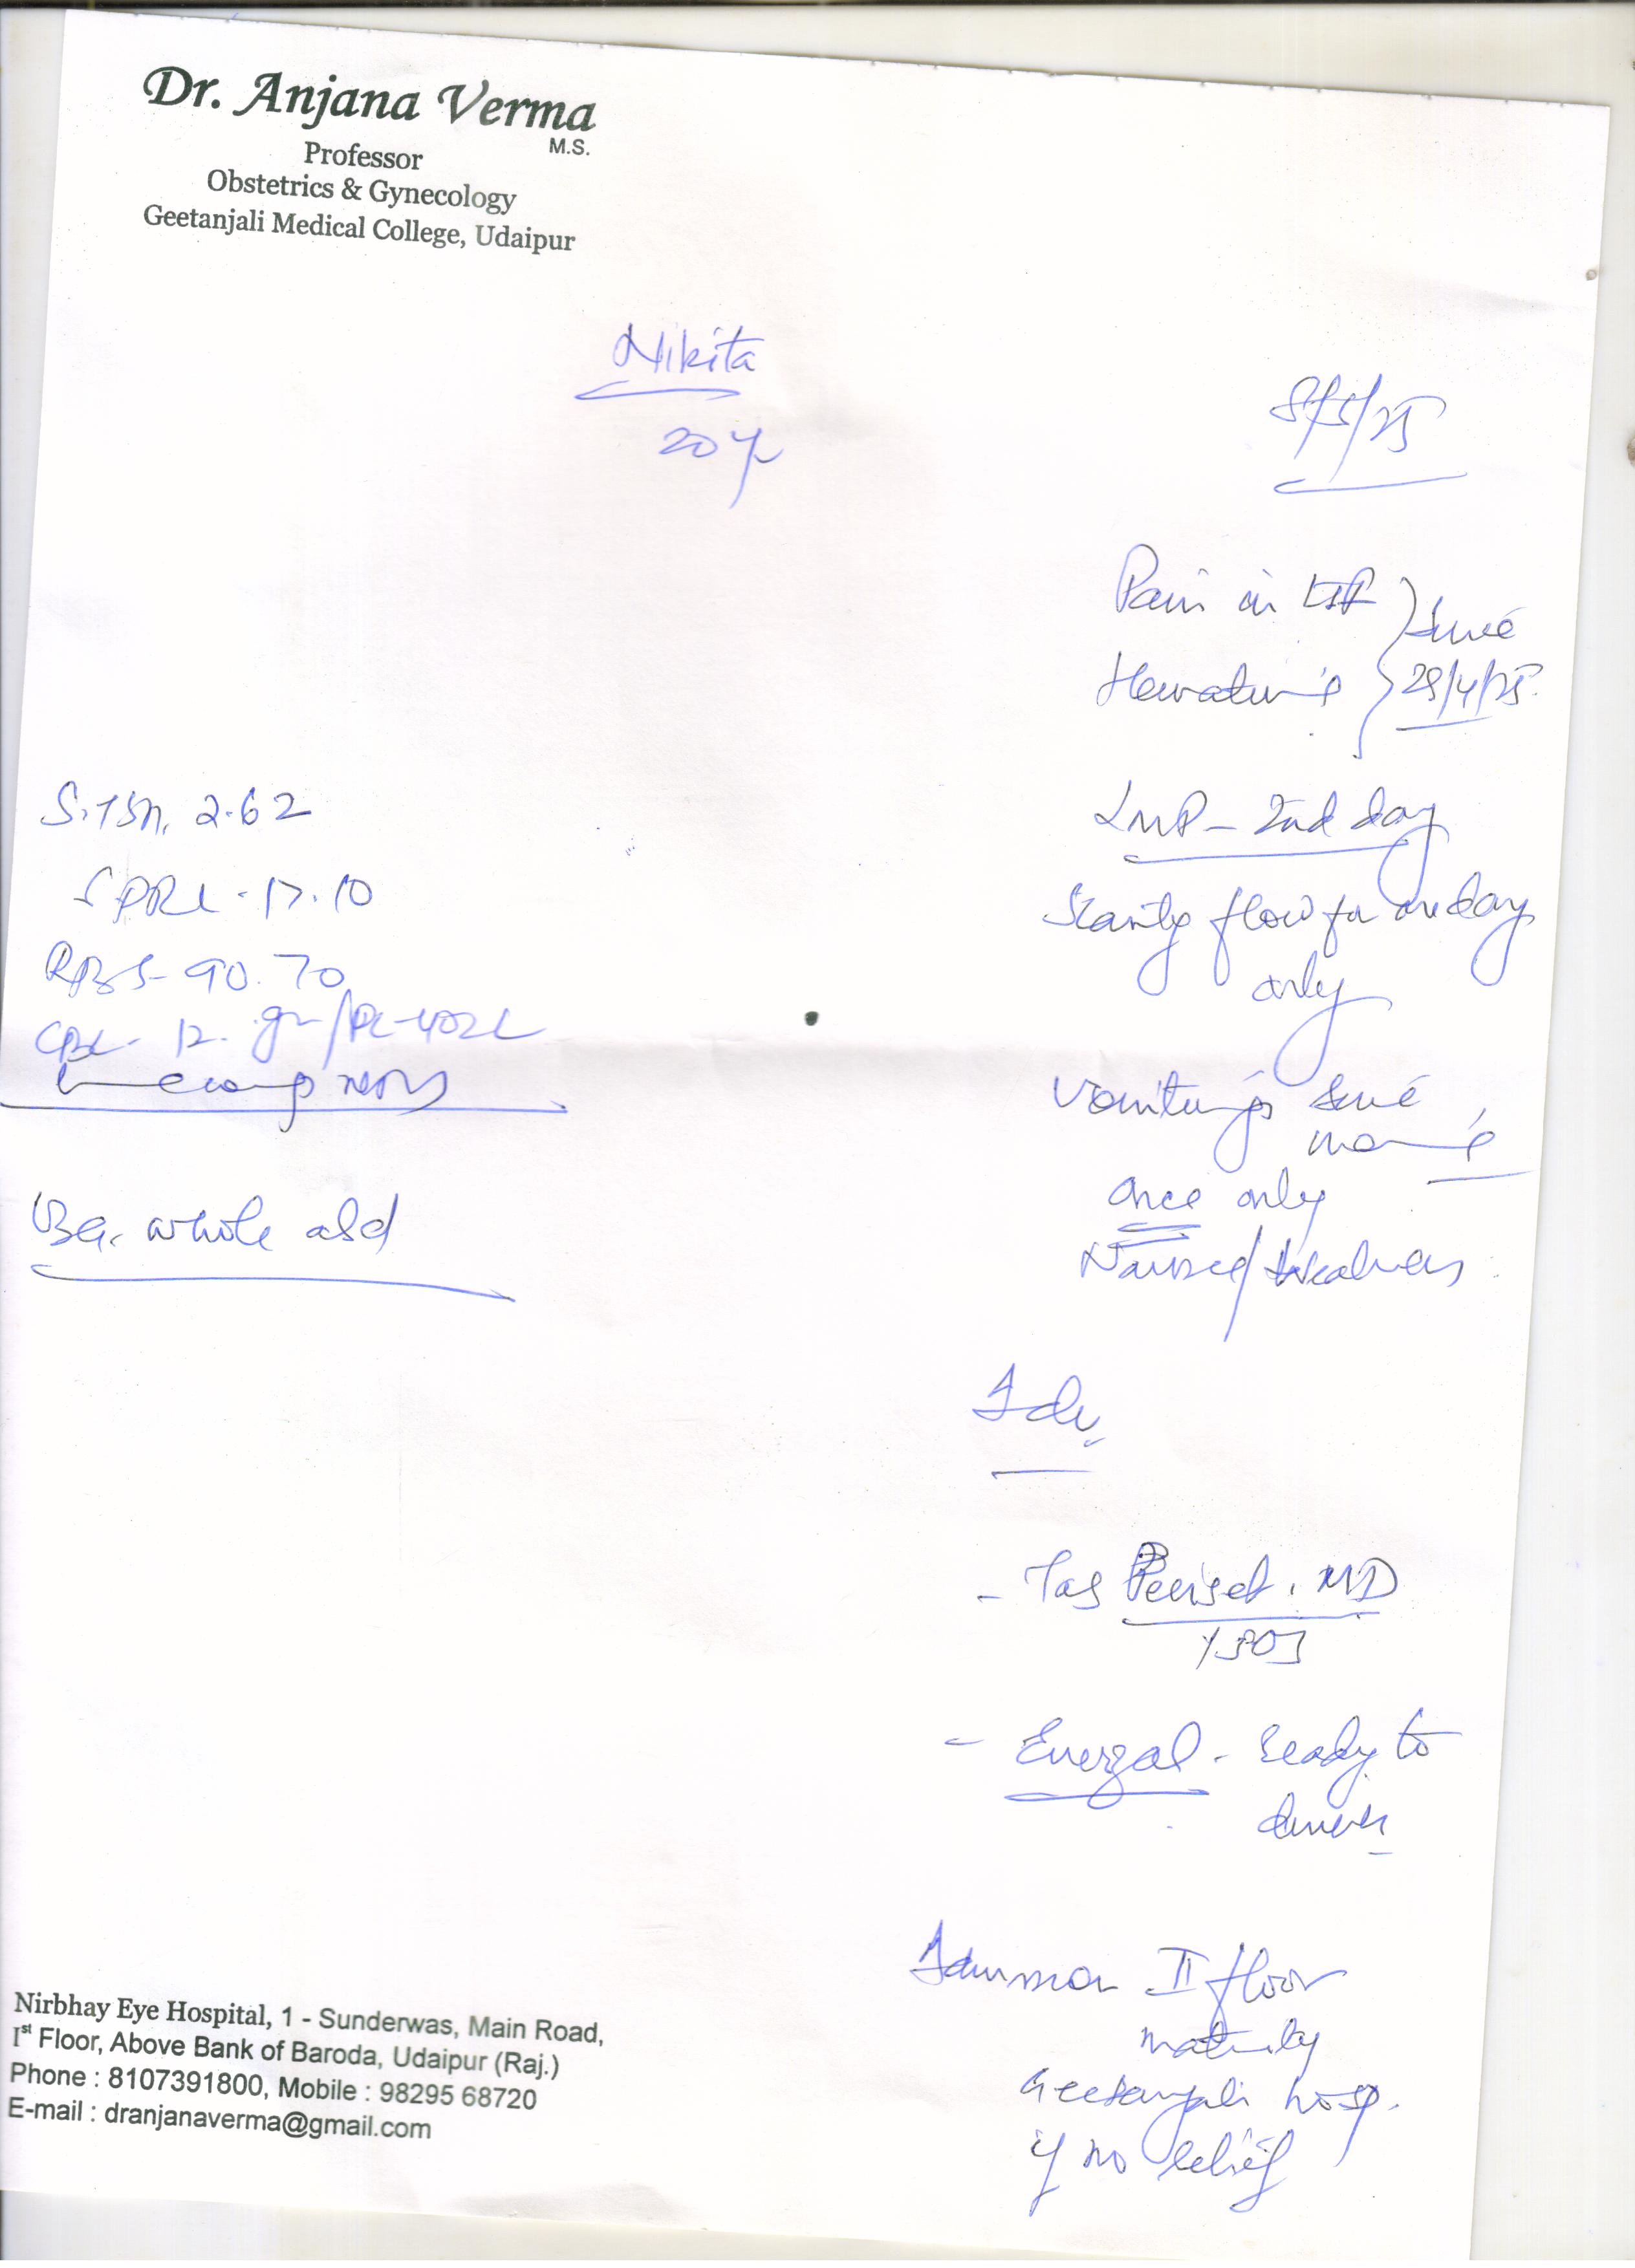 Dr. Anjana Verma
M.S.
Professor
Obstetrics & Gynecology
Geetanjali Medical College, Udaipur
Nikita
20 y
8/5/25
Pain in
since
29/4/25
LMP - 2nd day
Scanty flow for one day
only
Vomiting since
morning
once only
Nausea/Weakness
S. TSH. 2.62
S PRL - 17.10
RBS - 90.70
CBC - 12. gm/PL-402L
USG. whole abd
Adv
- Tab . MD
- Enerzal - ready to
Admission II floor
maternity
Geetanjali hosp.
if no relief
Nirbhay Eye Hospital, 1 - Sunderwas, Main Road,
Ist Floor, Above Bank of Baroda, Udaipur (Raj.)
Phone : 8107391800, Mobile : 98295 68720
E-mail : dranjanaverma@gmail.com